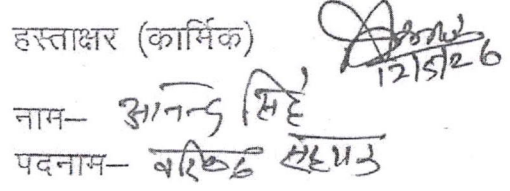 हस्ताक्षर (कार्मिक)
12/5/26
नाम– आनन्द सिंह
पदनाम– वरिष्ठ सहायक